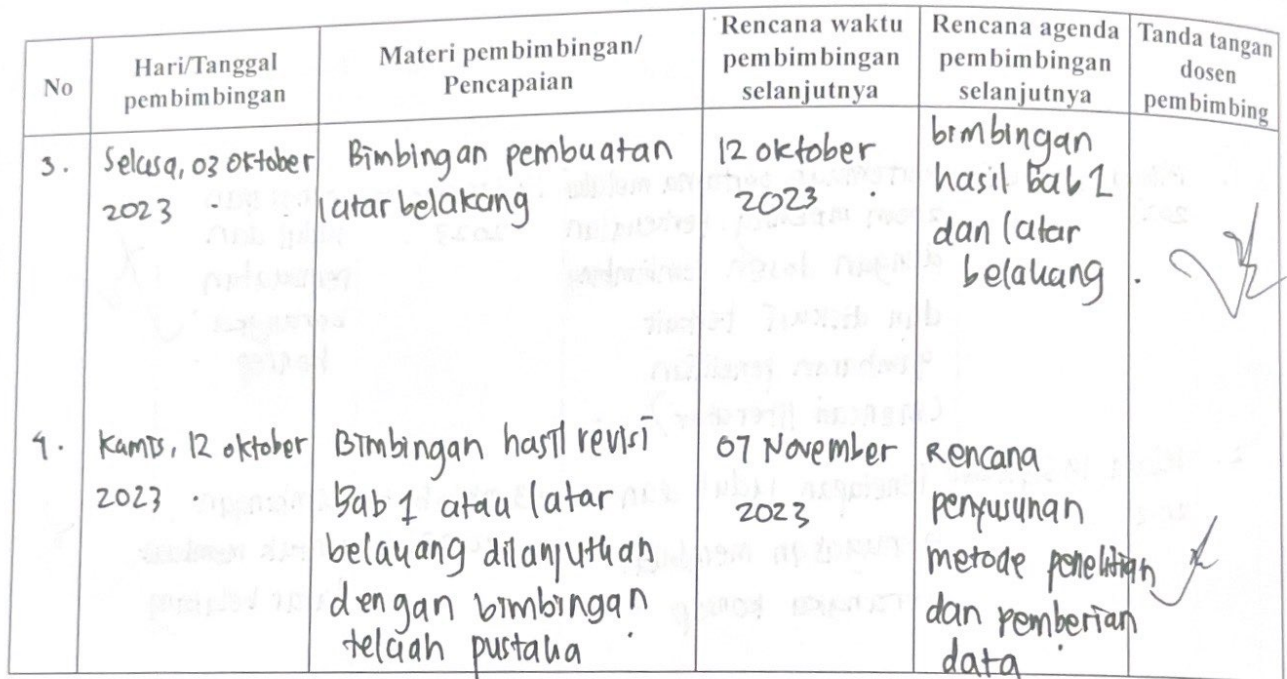 No
Hari/Tanggal
pembimbingan
Materi pembimbingan/
Pencapaian
Rencana waktu
pembimbingan
selanjutnya
Rencana agenda
pembimbingan
selanjutnya
Tanda tangan
dosen
pembimbing
3.
Selasa, 03 Oktober
2023
Bimbingan pembuatan
latar belakang
12 oktober
2023
bimbingan
hasil bab 1
dan latar
belakang
4.
Kamis, 12 oktober
2023
Bimbingan hasil revisi
Bab 1 atau latar
belakang dilanjutkan
dengan bimbingan
telaah pustaka
07 November
2023
Rencana
penyusunan
metode penelitian
dan pemberian
data